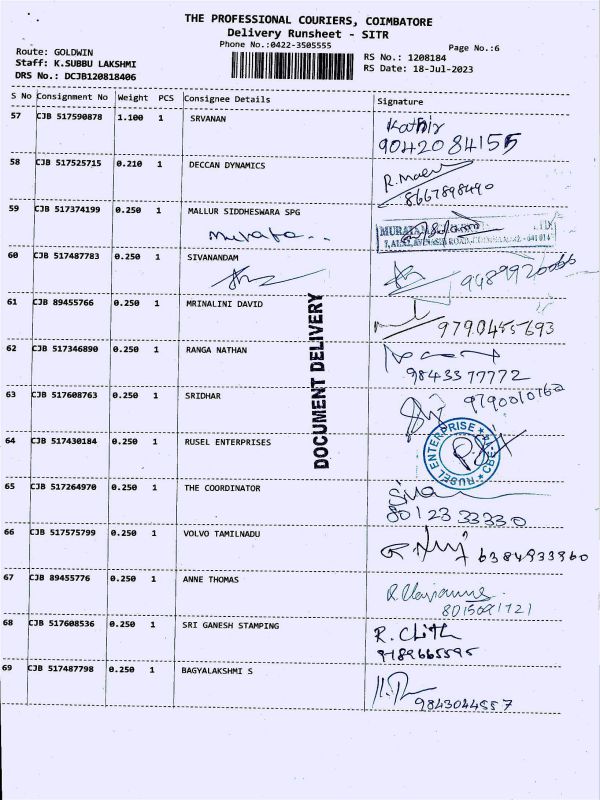 THE PROFESSIONAL COURIERS, COIMBATORE
Delivery Runsheet - SITR
Phone No.:0422-3505555
Page No.:6
Route: GOLDWIN
Staff: K.SUBBU LAKSHMI
DRS No.: DCJB120818406
RS No.: 1208184
RS Date: 18-Jul-2023
S No Consignment No Weight PCS Consignee Details Signature
57 CJB 517590878 1.100 1 SRVANAN
Kathir
9042084155
58 CJB 517525715 0.210 1 DECCAN DYNAMICS
8667898490
59 CJB 517374199 0.250 1 MALLUR SIDDHESWARA SPG
murata..
60 CJB 517487783 0.250 1 SIVANANDAM
61 CJB 89455766 0.250 1 MRINALINI DAVID
9790455693
62 CJB 517346890 0.250 1 RANGA NATHAN
9843377772
63 CJB 517608763 0.250 1 SRIDHAR
64 CJB 517430184 0.250 1 RUSEL ENTERPRISES
RUSEL ENTERPRISE
65 CJB 517264970 0.250 1 THE COORDINATOR
Siva
8012333330
66 CJB 517575799 0.250 1 VOLVO TAMILNADU
6384933960
67 CJB 89455776 1 ANNE THOMAS
68 CJB 517608536 0.250 1 SRI GANESH STAMPING
9789665595
69 CJB 517487798 0.250 1 BAGYALAKSHMI S
9843044557
DOCUMENT DELIVERY